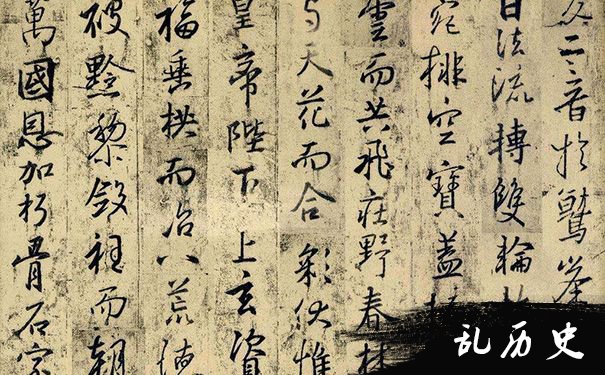 二音於鷲峯
日法流轉雙輪
菀排空寶蓋
雲而共飛莊野春林
与天花而合彩伏惟
皇帝陛下上玄資
福垂拱而治八荒德
被黔黎斂衽而朝
萬國恩加朽骨石室
乱历史